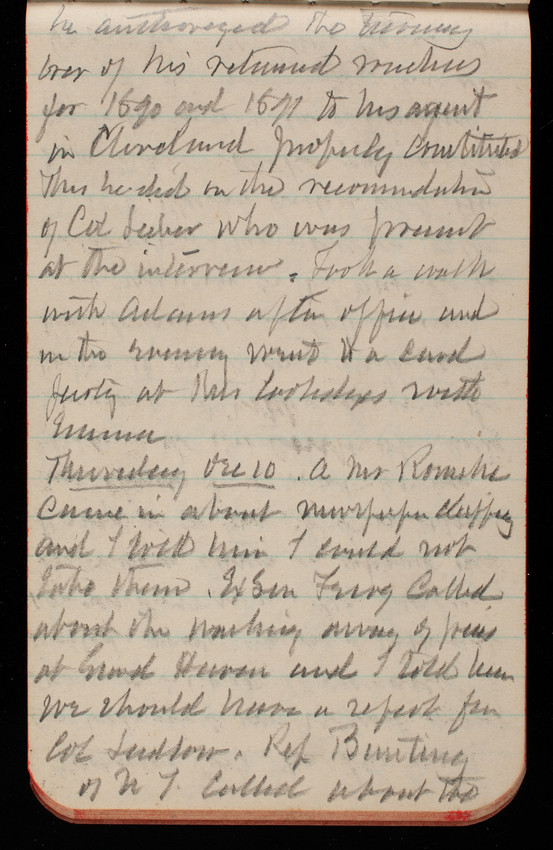 he authorized the turning
over of his retained
for 1890 and 1891 to his agent
in Cleveland properly constituted
This he did on the recommendation
of Col who was present
at the interview. Took a walk
with Adams after office and
in the evening went to a card
party at Mrs with
Emma
Thursday Dec 10. A Mr Romeike
came in about newspaper clippings
and I told him I could not
take them. Ex Sen Ferry called
about the washing away of piers
at Grand Haven and I told him
we should have a report from
Col Ludlow. Rep Bunting
of N Y called about the